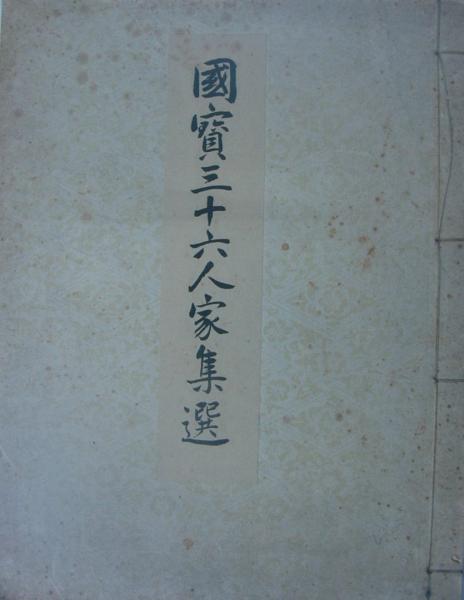 國寶三十六人家集選